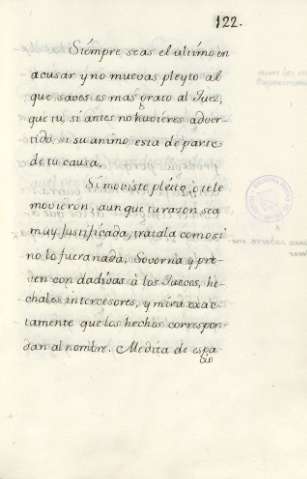 122.
Siempre seas el ultimo en
acusar y no muevas pleyto al
que saves es mas grato al Juez,
que tu, si antes no huvieres adver-
tido, si su animo esta de parte
de tu causa.
Si moviste pleito, o te le
movieron, aunque tu razon sea
muy Justificada, tratala como si
no lo fuera nada, Soborna y pre-
vien con dadivas à los Jueces, he-
chales intercesores, y mira exac-
tamente que los hechos correspon-
dan al nombre. Medita de espa-
cio